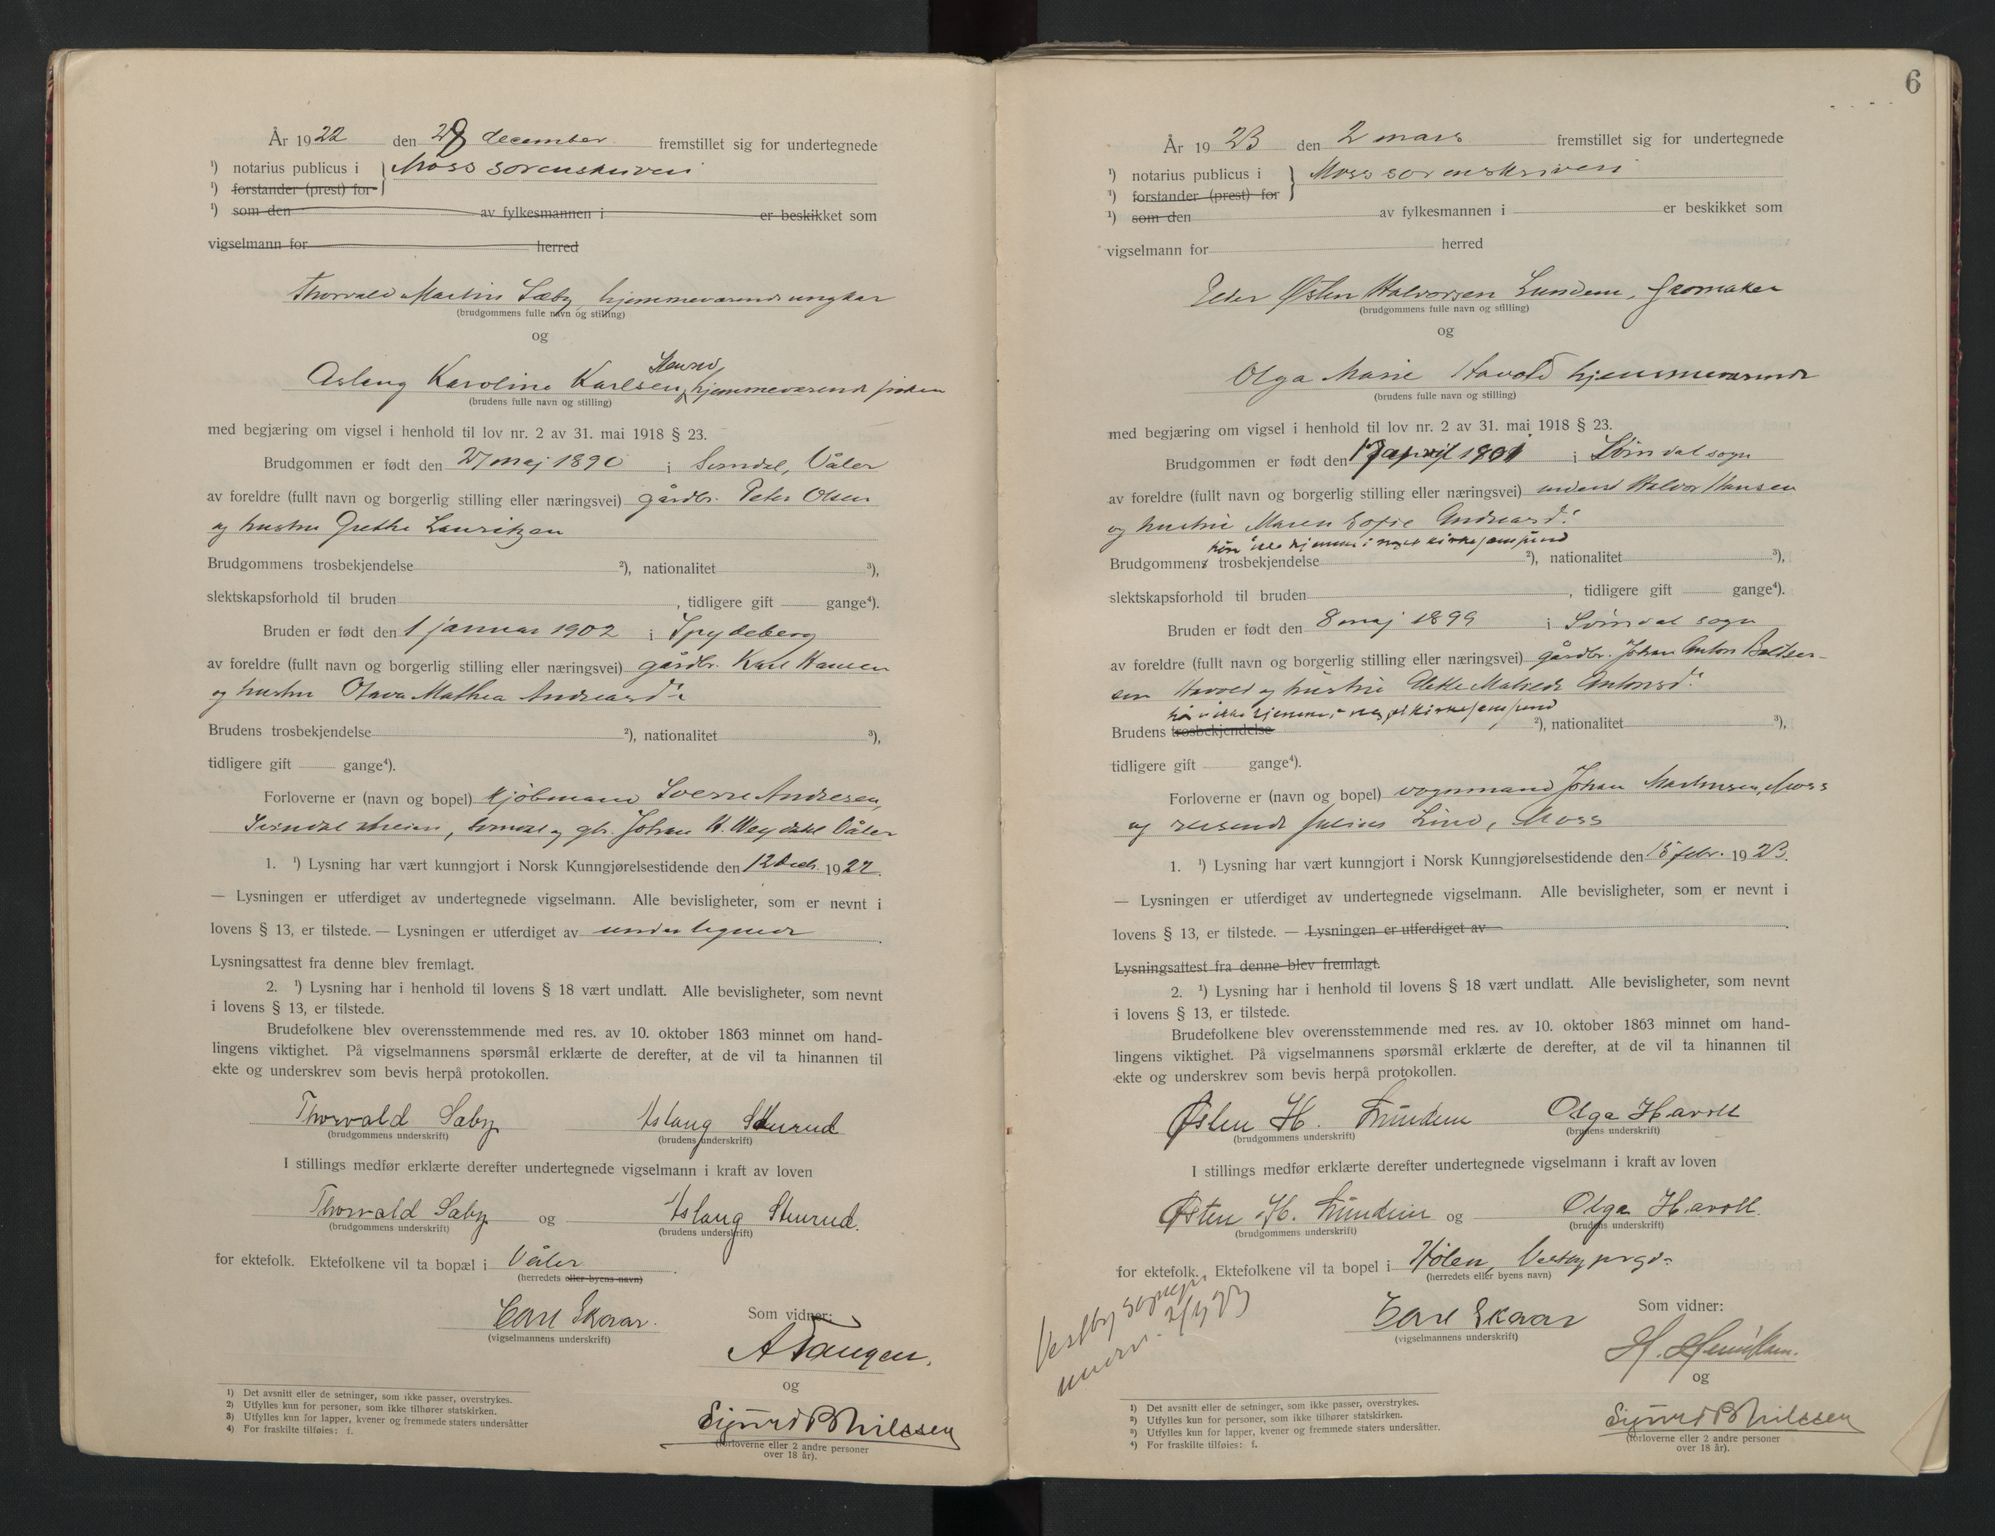 År 1922 den 29 december fremstillet sig for undertegnede
¹) notarius publicus i } Moss sorenskriveri
¹) forstander (prest) for
¹) som den av fylkesmannen i er beskikket som
vigselmann for herred
Thorvald Martin Sæby, hjemmeværende ungkar
(brudgommens fulle navn og stilling)
og
Stenrud
Aslaug Karoline Karlsen, hjemmeværende piken
(brudens fulle navn og stilling)
med begjæring om vigsel i henhold til lov nr. 2 av 31. mai 1918 § 23.
Brudgommen er født den 27 maj 1890 i Svindal, Våler
av foreldre (fullt navn og borgerlig stilling eller næringsvei) gårdbr. Peter Olsen
og hustru Grethe Lauritzen
Brudgommens trosbekjendelse ²), nationalitet ³),
slektskapsforhold til bruden , tidligere gift gange⁴).
Bruden er født den 1 januar 1902 i Spydeberg
av foreldre (fullt navn og borgerlig stilling eller næringsvei) gårdbr. Karl Hansen
og hustru Olava Mathea Andreasd.
Brudens trosbekjendelse ²), nationalitet ³),
tidligere gift gange⁴).
Forloverne er (navn og bopel) kjøbmann Sverre Andresen,
Svindal, Svindal og gbr. Johan Våler
1. ¹) Lysning har vært kunngjort i Norsk Kunngjørelsestidende den 12 dec. 1922.
— Lysningen er utferdiget av undertegnede vigselmann. Alle bevisligheter, som er nevnt i
lovens § 13, er tilstede. — Lysningen er utferdiget av undertegnede.
Lysningsattest fra denne blev fremlagt.
2. ¹) Lysning har i henhold til lovens § 18 vært undlatt. Alle bevisligheter, som nevnt
i lovens § 13, er tilstede.
Brudefolkene blev overensstemmende med res. av 10. oktober 1863 minnet om hand-
lingens viktighet. På vigselmannens spørsmål erklærte de derefter, at de vil ta hinannen til
ekte og underskrev som bevis herpå protokollen.
Thorvald Sæby Aslaug Stenrud
(brudgommens underskrift) (brudens underskrift)
I stillings medfør erklærte derefter undertegnede vigselmann i kraft av loven
Thorvald Sæby og Aslaug Stenrud.
(brudgommens underskrift) (brudens underskrift)
for ektefolk. Ektefolkene vil ta bopæl i Våler.
(herredets eller byens navn)
Carl Skaar. Som vidner:
(vigselmannens underskrift) A Tangen.
og
Sigurd B Nilssen
(forloverne eller 2 andre personer
over 18 år).
1) Det avsnitt eller de setninger, som ikke passer, overstrykes.
2) Utfylles kun for personer, som ikke tilhører statskirken.
3) Utfylles kun for lapper, kvener og fremmede staters undersåtter
4) For fraskilte tilføies: f.
6
År 1923 den 2 mars fremstillet sig for undertegnede
¹) notarius publicus i } Moss sorenskriveri
¹) forstander (prest) for
¹) som den av fylkesmannen i er beskikket som
vigselmann for herred
Peder Østen Halvorsen Lundem, skomaker
(brudgommens fulle navn og stilling)
og
Olga Marie Havold hjemmeværende
(brudens fulle navn og stilling)
med begjæring om vigsel i henhold til lov nr. 2 av 31. mai 1918 § 23.
Brudgommen er født den 17 april 1901 i Svindal sogn
av foreldre (fullt navn og borgerlig stilling eller næringsvei) Halvor Hansen
og hustru Maren Sofie Andreasd.
hører ikke hjemme i noget kirkesamfund
Brudgommens trosbekjendelse ²), nationalitet ³),
slektskapsforhold til bruden , tidligere gift gange⁴).
Bruden er født den 8 maj 1899 i Svindal sogn
av foreldre (fullt navn og borgerlig stilling eller næringsvei) gårdbr. Johan Anton Baltser-
sen Havold og hustru Matilde Antonsd.
hører ikke hjemme i noget kirkesamfund
Brudens trosbekjendelse ²), nationalitet ³),
tidligere gift gange⁴).
Forloverne er (navn og bopel) vognmand Johan Martinsen, Moss
og reisende Julius Lind, Moss
1. ¹) Lysning har vært kunngjort i Norsk Kunngjørelsestidende den 15 febr. 1923.
— Lysningen er utferdiget av undertegnede vigselmann. Alle bevisligheter, som er nevnt i
lovens § 13, er tilstede. — Lysningen er utferdiget av
Lysningsattest fra denne blev fremlagt.
2. ¹) Lysning har i henhold til lovens § 18 vært undlatt. Alle bevisligheter, som nevnt
i lovens § 13, er tilstede.
Brudefolkene blev overensstemmende med res. av 10. oktober 1863 minnet om hand-
lingens viktighet. På vigselmannens spørsmål erklærte de derefter, at de vil ta hinannen til
ekte og underskrev som bevis herpå protokollen.
Østen H. Lundem Olga Havoll
(brudgommens underskrift) (brudens underskrift)
I stillings medfør erklærte derefter undertegnede vigselmann i kraft av loven
Østen H. Lundem og Olga Havoll.
(brudgommens underskrift) (brudens underskrift)
for ektefolk. Ektefolkene vil ta bopel i Hølen, Vestby prgd.
(herredets eller byens navn)
Vestby sogn
Carl Skaar Som vidner:
(vigselmannens underskrift) H.
og
Sigurd B Nilssen
(forloverne eller 2 andre personer
over 18 år).
1) Det avsnitt eller de setninger, som ikke passer, overstrykes.
2) Utfylles kun for personer, som ikke tilhører statskirken.
3) Utfylles kun for lapper, kvener og fremmede staters undersåtter.
4) For fraskilte tilføies: f.